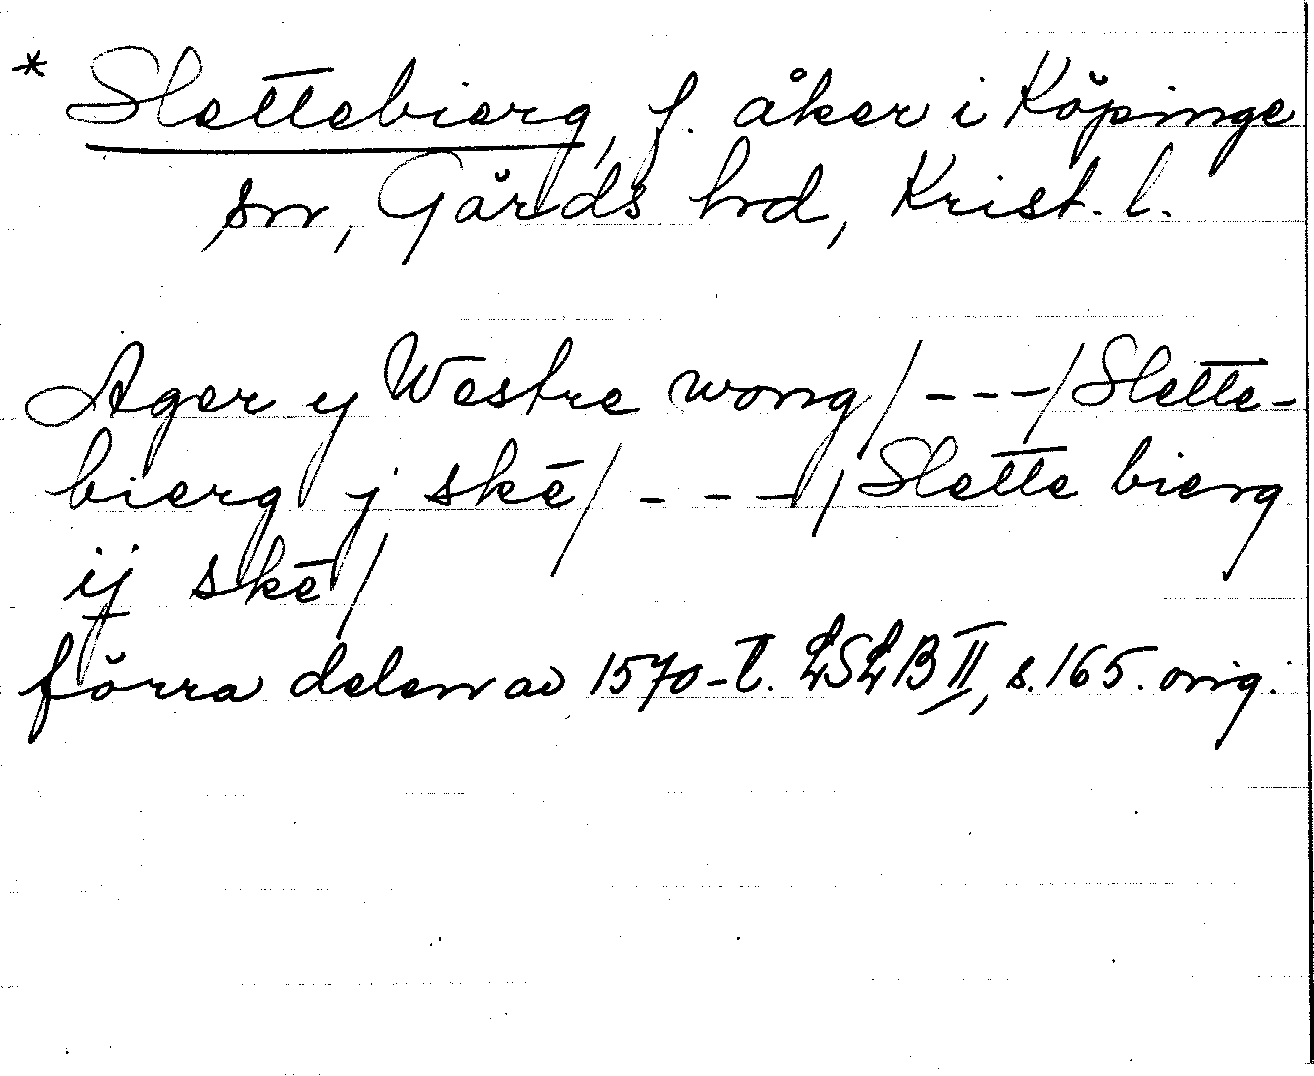 * Slettebierg, f. åker i Köpinge
sn, Gärds hrd, Krist. l.
Ager y Westre wong/ - - - / Slette-
bierg j skē/ - - - / Slette bierg
ij skē/
förra delen av 1570-t. LSLB II, s. 165. orig.